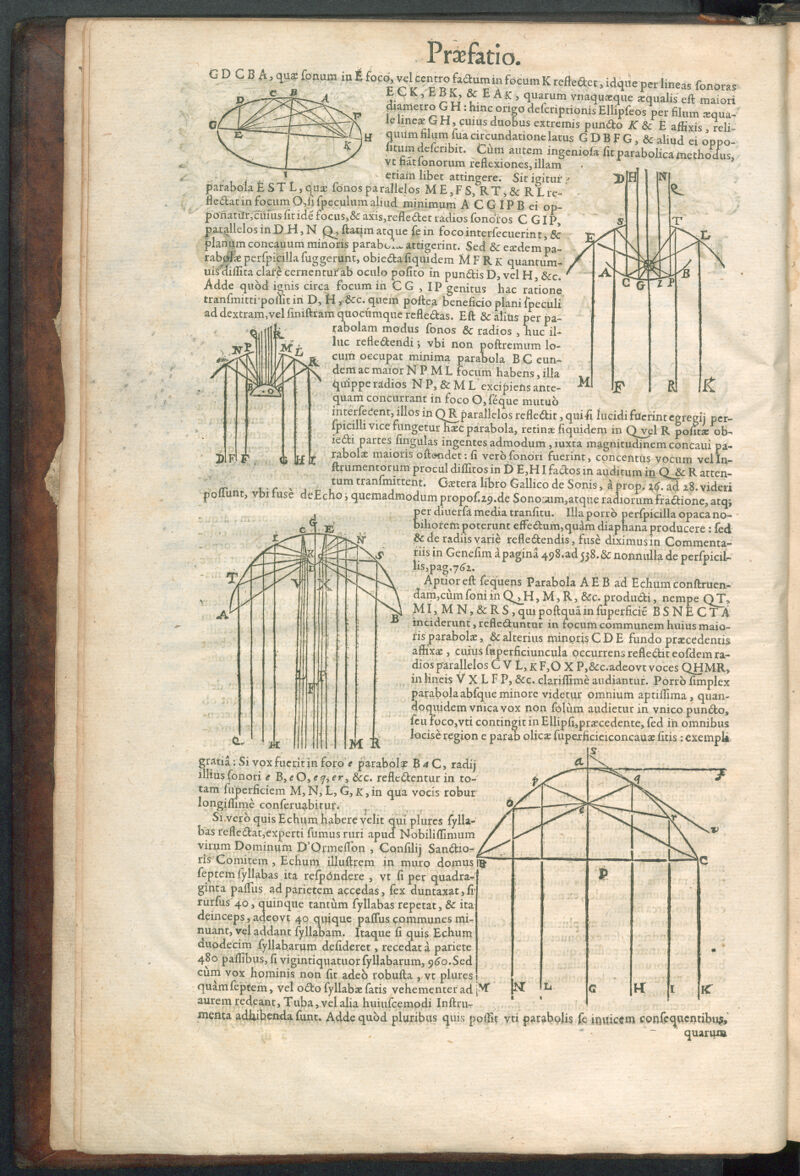 Præfatio.
G D C B A, quæ sonum in É foco, vel centro factum in focum K reflectet, idque per lineas sonoras
E C K, E B K, & E A K, quarum vnaquæque æqualis est maiori
diametro G H: hinc origo descriptionis Ellipseos per filum æqua-
le lineæ G H, cuius duobus extremis puncto K & E affixis, reli-
quum filum sua circundatione latus G D B F G, & aliud ei oppo-
situm describit. Cùm autem ingeniosa sit parabolica methodus,
vt fiāt sonorum reflexiones, illam
etiam libet attingere. Sit igitur
parabola E S T L, quæ sonos parallelos M E, F S, R T, & R L re-
flectat in focum O, si speculum aliud minimum A C G I P B ei op-
ponatur, cuius sit idē focus, & axis, reflectet radios sonoros C G I P,
parallelos in D H, N Q, statim atque se in foco intersecuerint, &
planum concauum minoris parabolæ attigerint. Sed & eædem pa-
rabolæ perspicilla suggerunt, obiecta siquidem M F R K quantum-
uis dissita clarè cernentur ab oculo posito in punctis D, vel H, &c.
Adde quòd ignis circa focum in C G, I P genitus hac ratione
transmitti possit in D, H, &c. quem postea beneficio plani speculi
ad dextram, vel sinistram quocumque reflectas. Est & alius per pa-
rabolam modus sonos & radios, huc il-
luc reflectendi; vbi non postremum lo-
cum occupat minima parabola B C eun-
dem ac maior N P M L focum habens, illa
quippe radios N P, & M L excipiens ante-
quam concurrant in foco O, seque mutuò
intersecent, illos in Q R parallelos reflectit, qui si lucidi fuerint egregij per-
spicilli vice fungetur hæc parabola, retinæ siquidem in Q vel R positæ ob-
iecti partes singulas ingentes admodum, iuxta magnitudinem concaui pa-
rabolæ maioris ostendet: si verò sonori fuerint, concentus vocum vel In-
strumentorum procul dissitos in D E, H I factos in auditum in Q & R atten-
tum transmittent. Cætera libro Gallico de Sonis, à prop. 26. ad 28. videri
possunt, vbi fusè de Echo, quemadmodum propos. 29. de Sonorum, atque radiorum fractione, atq;
per diuersa media transitu. Illa porrò perspicilla opaca no-
biliorem poterunt effectum, quàm diaphana producere: sed
& de radiis variè reflectendis, fusè diximus in Commenta-
riis in Genesim à paginâ 498. ad 538. & nonnulla de perspicil-
lis, pag. 762.
Aptior est sequens Parabola A E B ad Echum construen-
dam, cùm soni in Q, H, M, R, &c. producti, nempe Q T,
M I, M N, & R S, qui postquā in superficiē B S N E C T A
inciderunt, reflectuntur in focum communem huius maio-
ris parabolæ, & alterius minoris C D E fundo præcedentis
affixæ, cuius superficiuncula occurrens reflectit eosdem ra-
dios parallelos C V L, K F, O X P, &c. adeovt voces QHMR,
in lineis V X L F P, &c. clarissimè audiantur. Porrò simplex
parabola absque minore videtur omnium aptissima, quan-
doquidem vnica vox non solùm audietur in vnico puncto,
seu foco, vti contingit in Ellipsi, præcedente, sed in omnibus
locis è regione parabolicæ superficiei concauæ sitis: exempli
gratiâ: Si vox fuerit in foro e parabolæ B a C, radij
illius sonori e B, e O, e q, e r, &c. reflectentur in to-
tam superficiem M, N, L, G, K, in qua vocis robur
longissimè conseruabitur.
Si verò quis Echum habere velit qui plures sylla-
bas reflectat, experti sumus ruri apud Nobilissimum
virum Dominum D'Ormesson, Consilij Sanctio-
ris Comitem, Echum illustrem in muro domus
septem syllabas ita respōndere, vt si per quadra-
ginta passus ad parietem accedas, sex duntaxat, si
rursus 40, quinque tantùm syllabas repetat, & ita
deinceps, adeovt 40 quique passus communes mi-
nuant, vel addant syllabam. Itaque si quis Echum
duodecim syllabarum desideret, recedat à pariete
480 passibus, si viginti quatuor syllabarum, 960. Sed
cùm vox hominis non sit adeò robusta, vt plures
quàm septem, vel octo syllabæ satis vehementer ad
aurem redeant, Tuba, vel alia huiuscemodi Instru-
menta adhibenda sunt. Adde quòd pluribus quis possit vti parabolis se inuicem consequentibus,
quarum